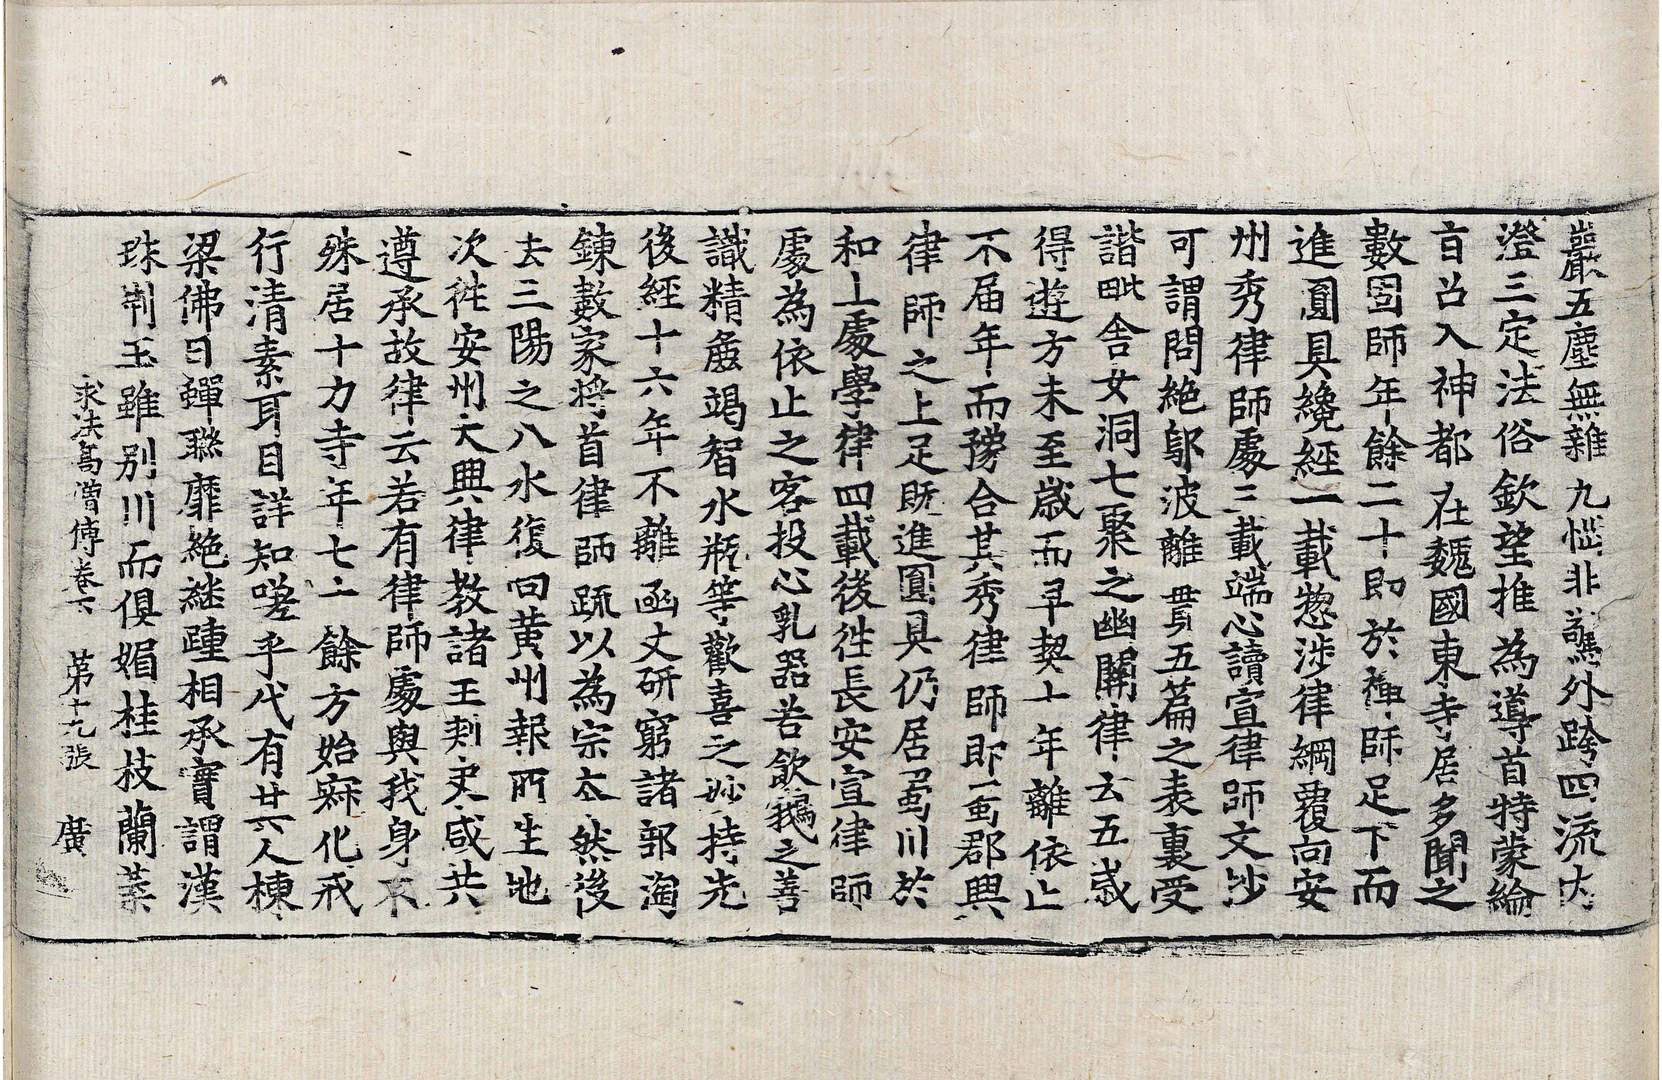 嚴五塵無雜九惱非驚外跨四流內
澄三定法俗欽望推為導首特蒙綸
旨召入神都在魏國東寺居多聞之
數固師年餘二十即於禪師足下而
進圓具纔經一載惣涉律綱覆向安
州秀律師處三載端心讀宣律師文沙
可謂問絕鄔波離貫五篇之表裏受
諧毗舍女洞七聚之幽關律云五歲
得遊方未至歲而早契十年離依止
不届年而預合其秀律師即蜀郡興
律師之上足既進圓具仍居蜀川於
和上處學律四載後往長安宣律師
處為依止之客投心乳器若飲鵝之善
識精麁竭智水瓶等歡喜之妙持先
後經十六年不離函丈研窮諸部淘
鍊數家將首律師疏以為宗本然後
去三陽之八水復向黃州報所生地
次往安州大興律教諸王刺史咸共
遵承故律云若有律師處與我身不
殊居十力寺年七十餘方始寂化戒
行清素耳目詳知嗟乎代有廿六人棟
梁佛日蟬聯靡絕繼踵相承實謂漢
珠荆玉雖別川而俱媚桂枝蘭蘂
求法高僧傳卷下　第十九張　廣